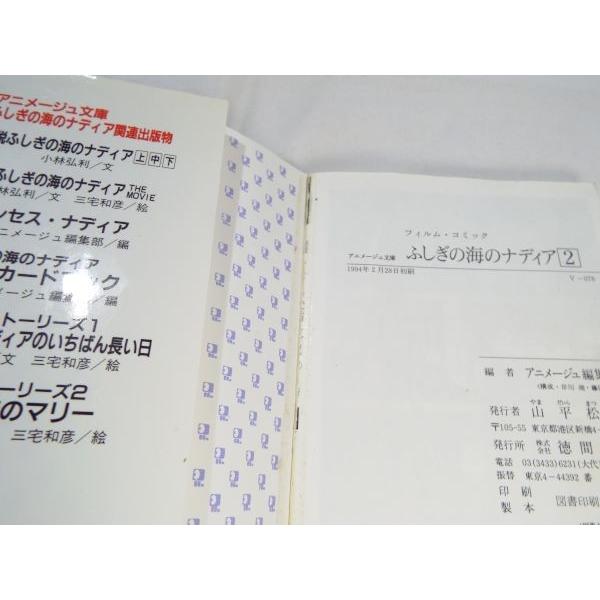 アニメージュ文庫
ふしぎの海のナディア関連出版物
説ふしぎの海のナディア上中下
小林弘利／文
ふしぎの海のナディア THE MOVIE
林弘利／文 三宅和彦／絵
ンセス・ナディア
ニメージュ編集部／編
の海のナディア
カードブック
メージュ編集部／編
トーリーズ1
ディアのいちばん長い日
文 三宅和彦／絵
ーリーズ2
のマリー
三宅和彦／絵
フィルム・コミック
アニメージュ文庫 ふしぎの海のナディア2
1994年2月28日初刷
V—07
編者 アニメージュ編集
発行者 山平松
やま だいら まつ
〒105-55 東京都港区新橋4-
発行所 株式会社 徳間
電話 03(3433)6231(大代
振替 東京4-44392
印刷
製本 図書印刷